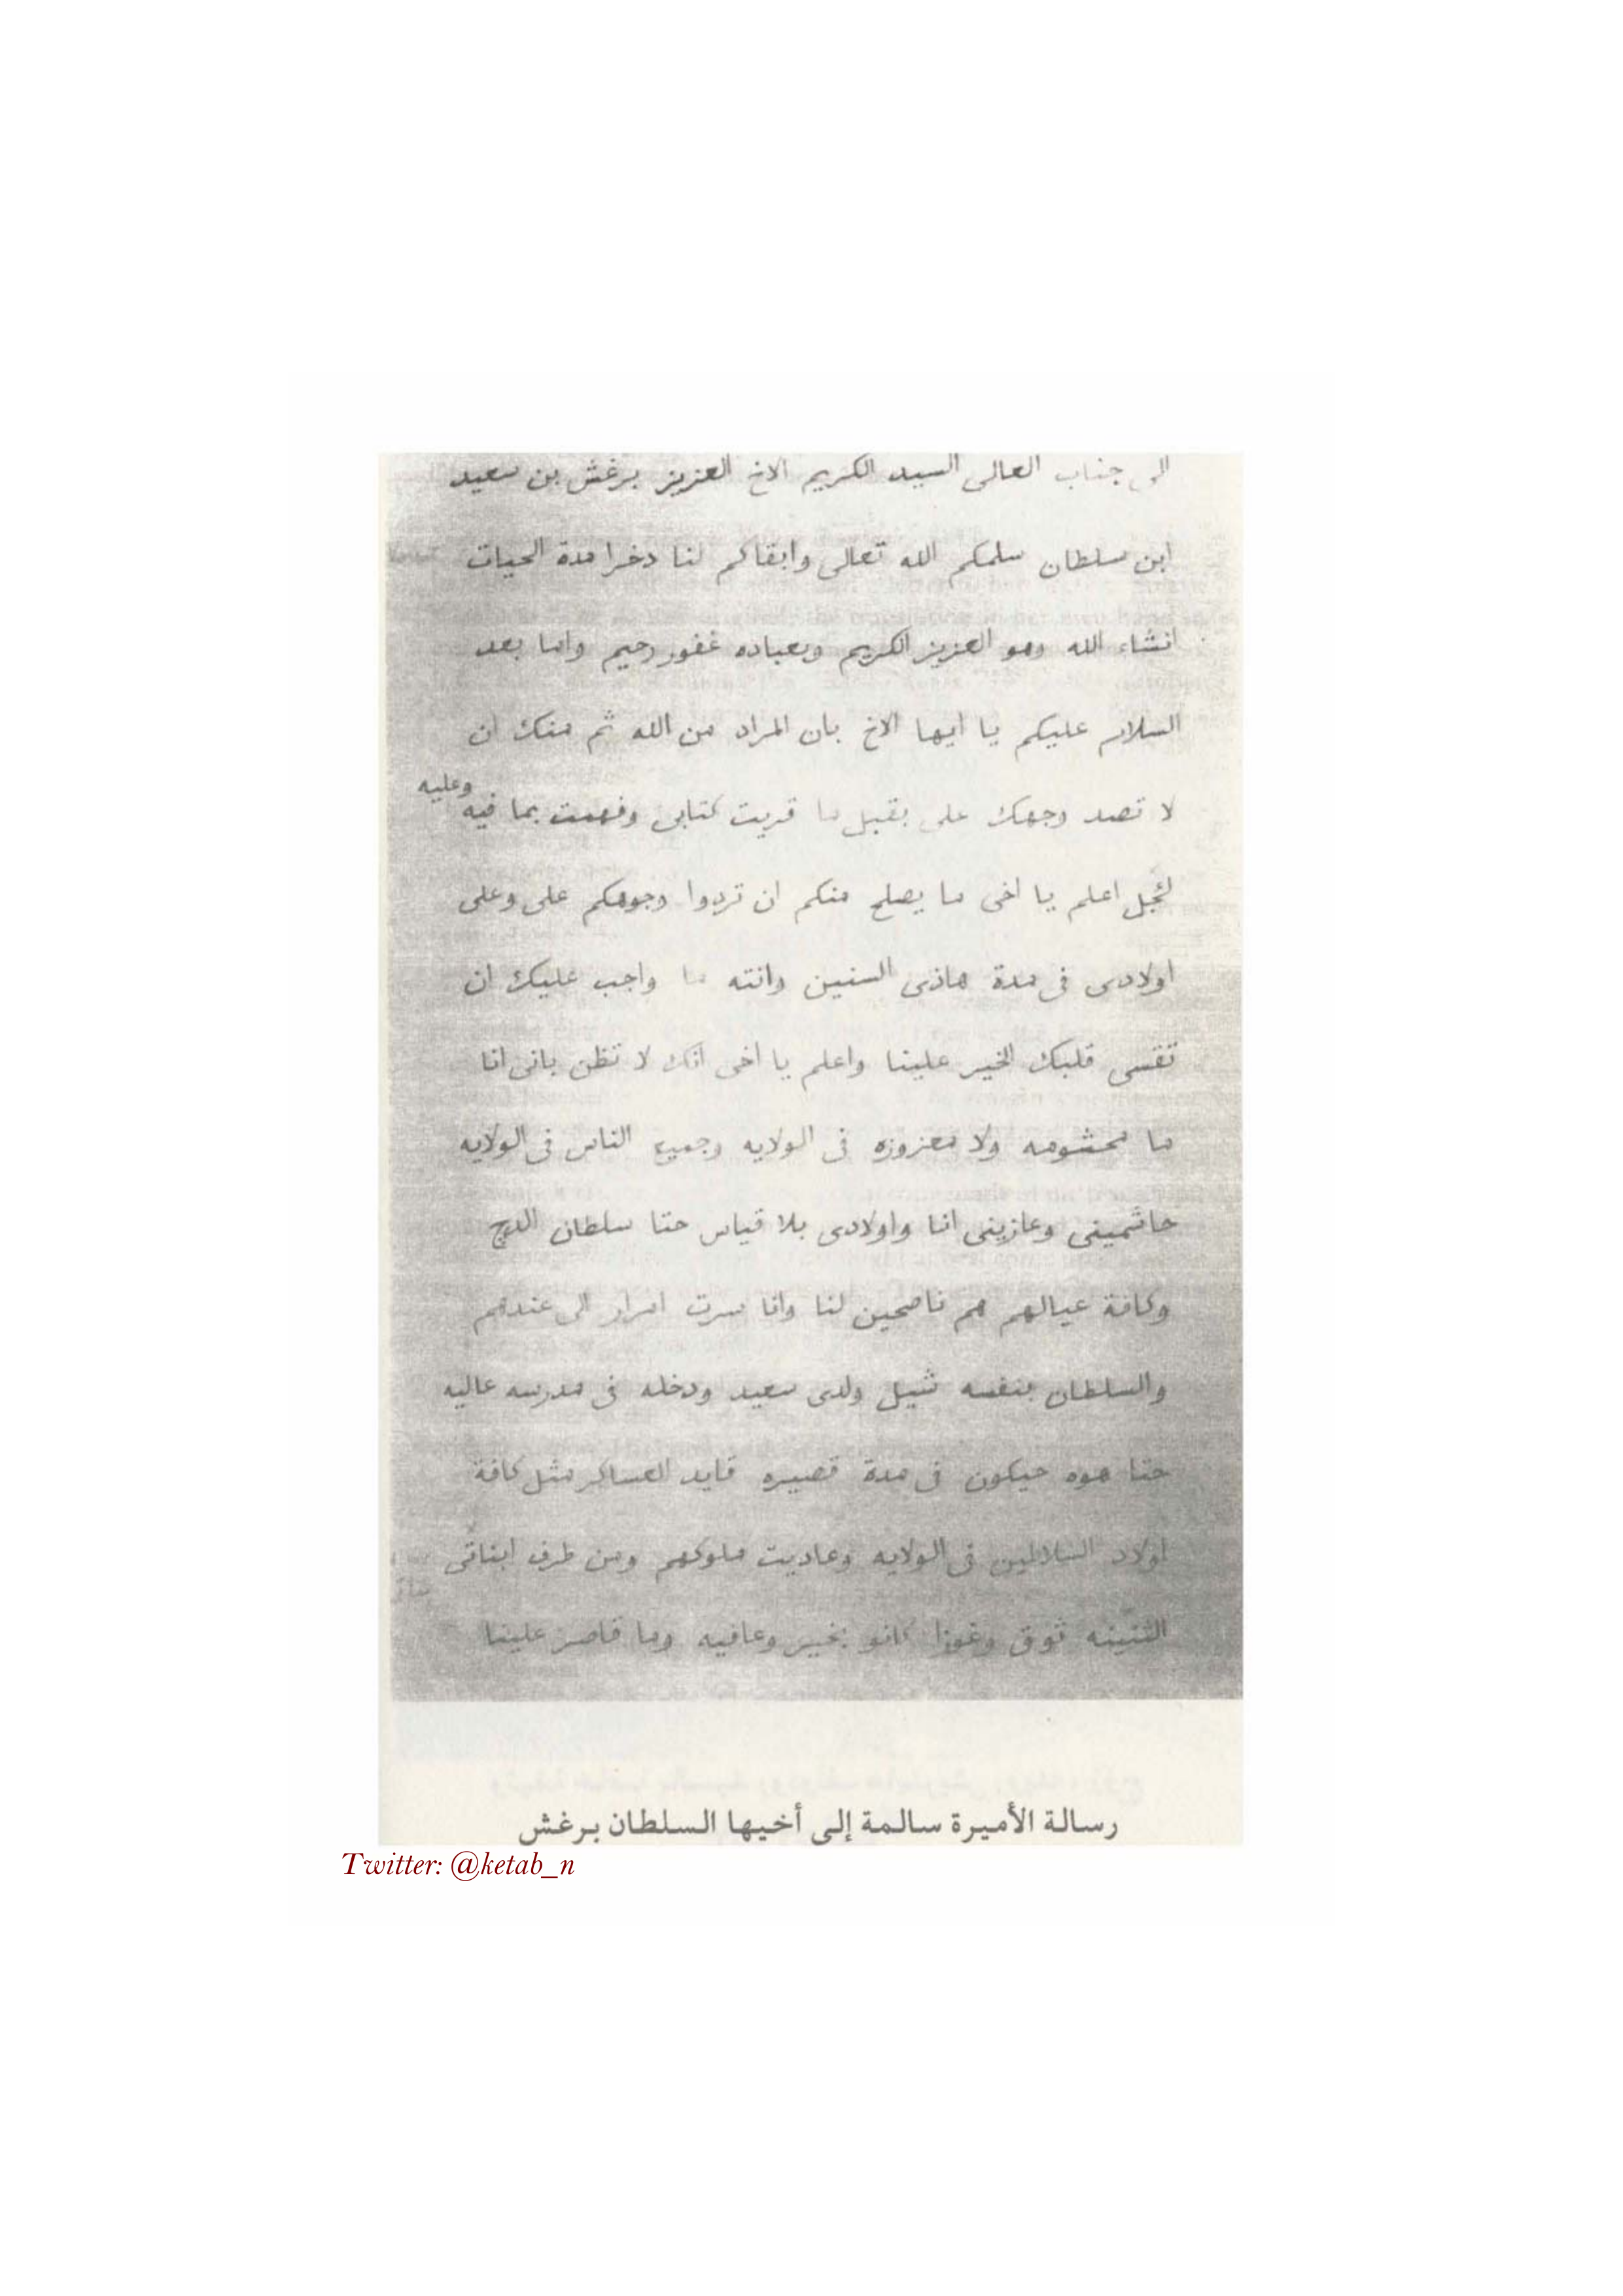 الى جناب العالى السيد الكريم الاخ العزيز برغش بن سعيد
ابن سلطان سلمكم الله تعالى وابقاكم لنا دخرا مدة الحيات
انشاء الله وهو العزيز الكريم وبعباده غفور رحيم واما بعد
السلام عليكم يا ايها الاخ بان المراد من الله ثم منك ان
وعليه
لا تصد وجهك على بقبل ما قريت كتابى وفهمت بما فيه
اعلم يا اخى ما يصلح منكم ان تردوا وجوهكم على وعلى
اولادى فى مدة هاذى السنين وانته ما واجب عليك ان
تقسى قلبك الخير علينا واعلم يا اخى انك لا تظن بانى انا
ما محشومه ولا معزوزه فى الولايه وجميع الناس فى الولايه
حاشمينى وعازينى انا واولادى بلا قياس حتا سلطان
وكافة عيالهم هم ناصحين لنا وانا سرت امرار الى عندهم
والسلطان بنفسه شيل ولدى سعيد ودخله فى مدرسه عاليه
حتا هوه حيكون فى مدة قصيره قايد العساكر مثل كافة
اولاد السلاطين فى الولايه وعاديت ملوكهم ومن طرف ابناتى
الثنينه ثوق وغوزا كانو بخير وعافيه وما قاصر علينا
رسالة الأميرة سالمة إلى أخيها السلطان برغش
Twitter: @ketab_n